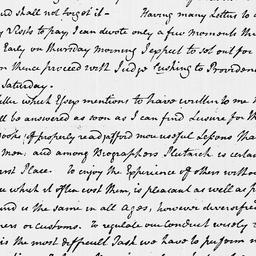 and shall not forget it – Having many Letters to
Visits to pay, I can devote only a few moments th
Early on thursday morning I expect to set out for
thence proceed with Judge Cushing to Providen
Saturday.
letter which Essex mentions to have written to me
ll be answered as soon as I can find Leisure for th
Books if properly read afford more useful Lessons tha
mon, and among Biographers Plutarch is certai
irst Place. To enjoy the Experience of others withou
which it often cost them, is pleasant as well as p
ind is the same in all Ages, however diversifie
ners or customs. To regulate our conduct wisely
is the most difficult Task we have to perform